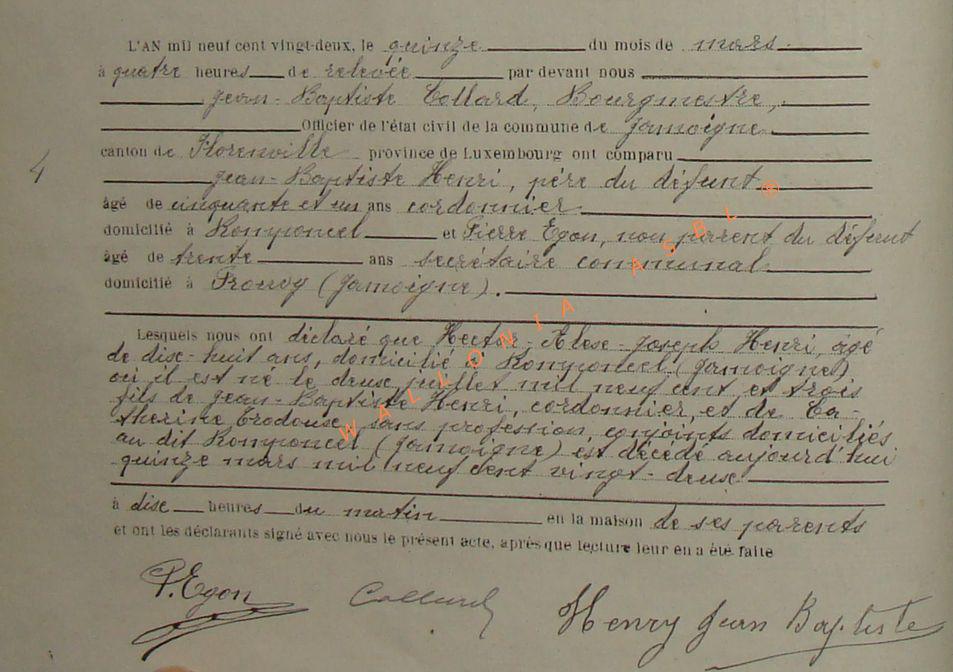 L'AN mil neuf cent vingt-deux, le quinze du mois de mars
à quatre heures de relevée par devant nous
Jean-Baptiste Collard, Bourgmestre,
Officier de l'état civil de la commune de Jamoigne
4 canton de Florenville province de Luxembourg ont comparu
Jean-Baptiste Henri, père du défunt
âgé de cinquante et un ans cordonnier
domicilié à Romponcel et Pierre Egon, non parent du défunt
âgé de trente ans secrétaire communal
domicilié à Prouvy (Jamoigne).
Lesquels nous ont déclaré que Hector-Joseph Henri, âgé
de dix-huit ans, domicilié à Romponcel (Jamoigne)
où il est né le deux juillet mil neuf cent et trois
fils de Jean-Baptiste Henri, cordonnier, et de Ca-
therine sans profession, conjoints domiciliés
au dit Romponcel (Jamoigne) est décédé aujourd'hui
quinze mars mil neuf cent vingt-deux
à dix heures du matin en la maison de ses parents
et ont les déclarants signé avec nous le présent acte, après que lecture leur en a été faite
P. Egon Collard Henry Jean Baptiste
WALLONIA ASBL ®